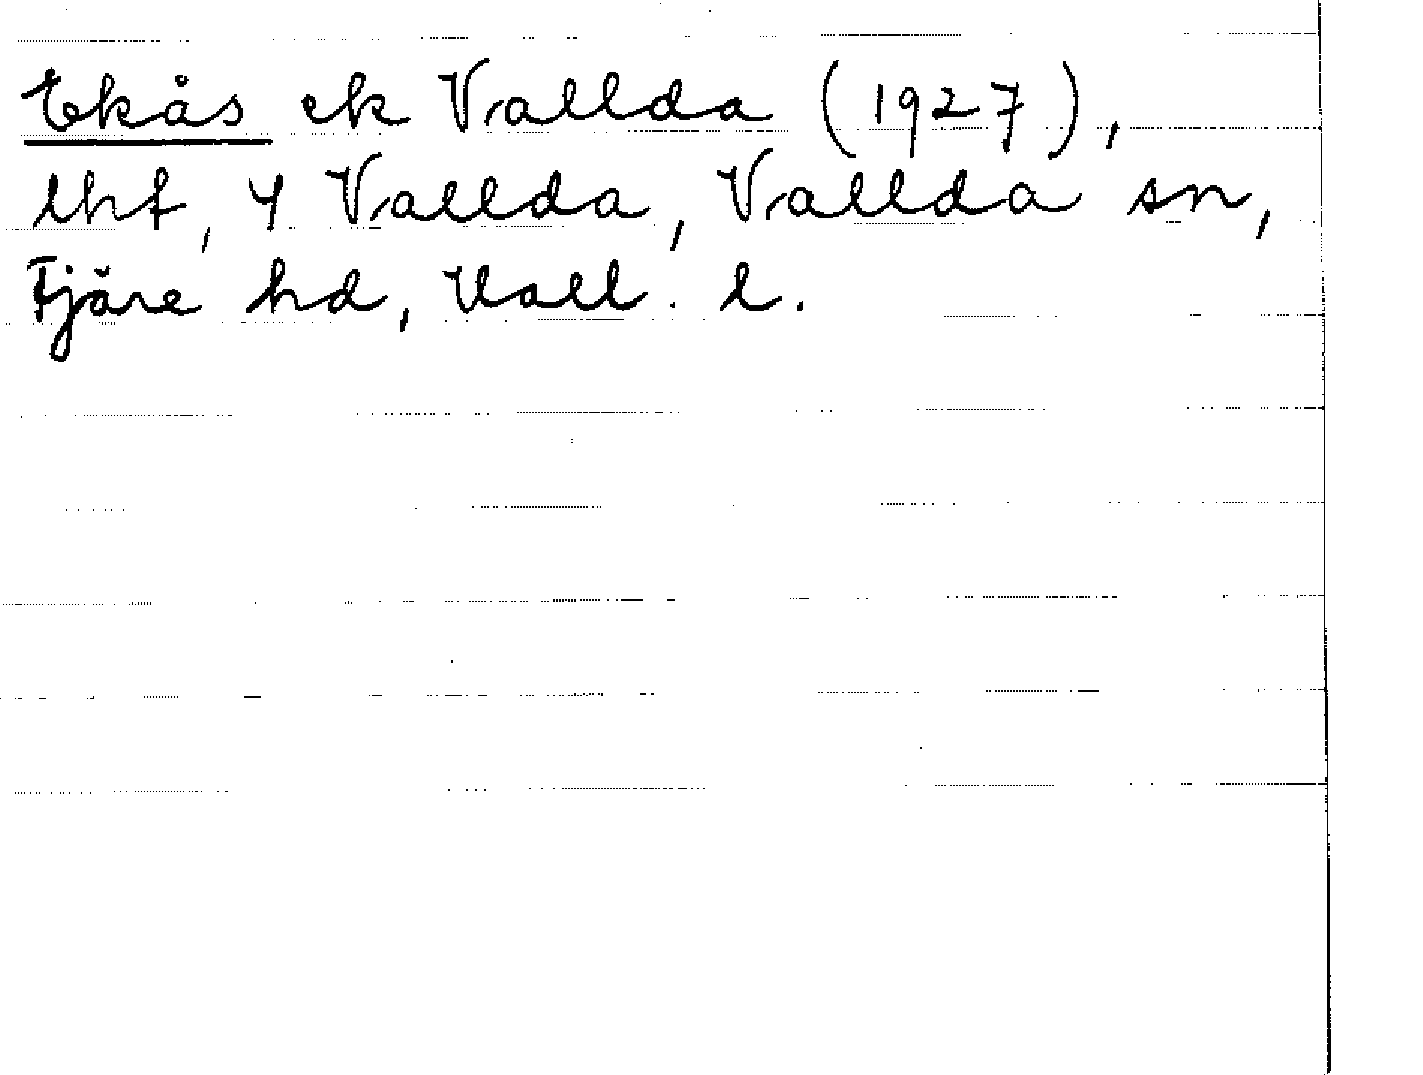 Ekås ek Vallda (1927),
lhf, 4 Vallda, Vallda sn,
Fjäre hd, Hall. l.